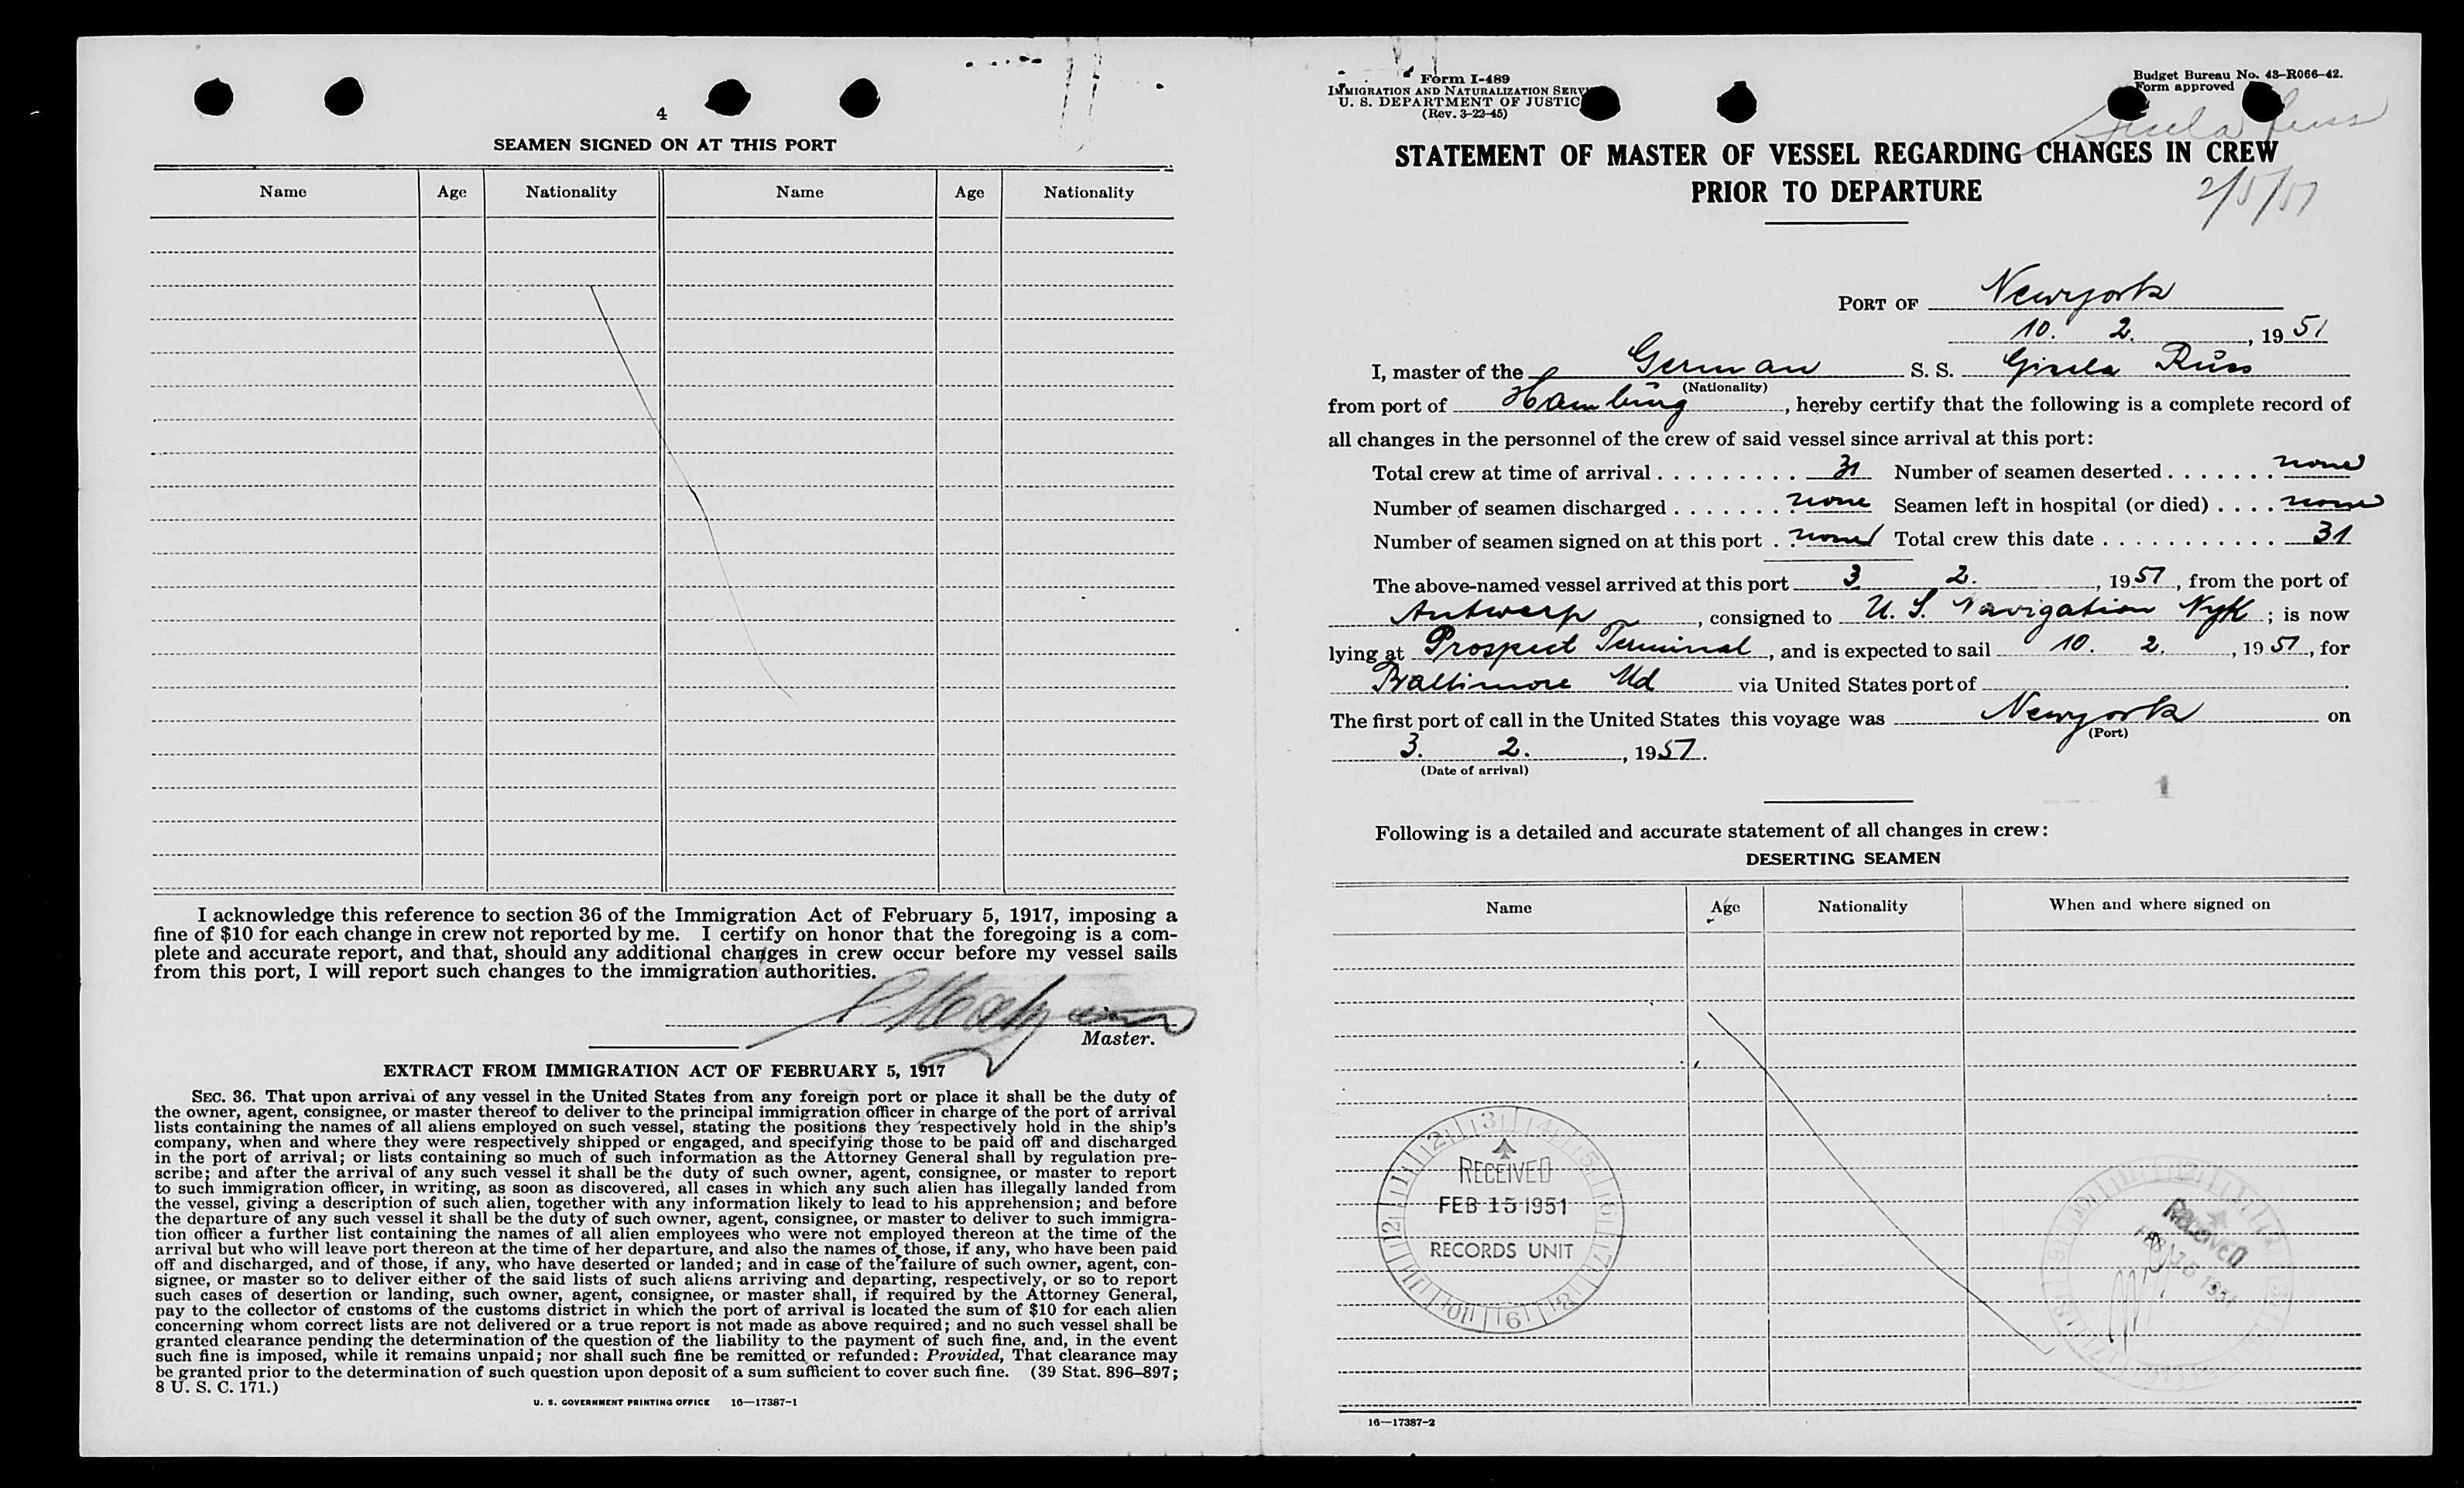 4
SEAMEN SIGNED ON AT THIS PORT
Name Age Nationality Name Age Nationality
I acknowledge this reference to section 36 of the Immigration Act of February 5, 1917, imposing a
fine of $10 for each change in crew not reported by me. I certify on honor that the foregoing is a com-
plete and accurate report, and that, should any additional changes in crew occur before my vessel sails
from this port, I will report such changes to the immigration authorities.
Master.
EXTRACT FROM IMMIGRATION ACT OF FEBRUARY 5, 1917
SEC. 36. That upon arrival of any vessel in the United States from any foreign port or place it shall be the duty of
the owner, agent, consignee, or master thereof to deliver to the principal immigration officer in charge of the port of arrival
lists containing the names of all aliens employed on such vessel, stating the positions they respectively hold in the ship's
company, when and where they were respectively shipped or engaged, and specifying those to be paid off and discharged
in the port of arrival; or lists containing so much of such information as the Attorney General shall by regulation pre-
scribe; and after the arrival of any such vessel it shall be the duty of such owner, agent, consignee, or master to report
to such immigration officer, in writing, as soon as discovered, all cases in which any such alien has illegally landed from
the vessel, giving a description of such alien, together with any information likely to lead to his apprehension; and before
the departure of any such vessel it shall be the duty of such owner, agent, consignee, or master to deliver to such immigra-
tion officer a further list containing the names of all alien employees who were not employed thereon at the time of the
arrival but who will leave port thereon at the time of her departure, and also the names of those, if any, who have been paid
off and discharged, and of those, if any, who have deserted or landed; and in case of the failure of such owner, agent, con-
signee, or master so to deliver either of the said lists of such aliens arriving and departing, respectively, or so to report
such cases of desertion or landing, such owner, agent, consignee, or master shall, if required by the Attorney General,
pay to the collector of customs of the customs district in which the port of arrival is located the sum of $10 for each alien
concerning whom correct lists are not delivered or a true report is not made as above required; and no such vessel shall be
granted clearance pending the determination of the question of the liability to the payment of such fine, and, in the event
such fine is imposed, while it remains unpaid; nor shall such fine be remitted or refunded: Provided, That clearance may
be granted prior to the determination of such question upon deposit of a sum sufficient to cover such fine. (39 Stat. 896–897;
8 U. S. C. 171.)
U. S. GOVERNMENT PRINTING OFFICE 16—17387-1
Form I-489
IMMIGRATION AND NATURALIZATION SERV
U. S. DEPARTMENT OF JUSTIC
(Rev. 3-22-45)
Budget Bureau No. 43–R066–42.
Form approved
Gisela Russ
STATEMENT OF MASTER OF VESSEL REGARDING CHANGES IN CREW
PRIOR TO DEPARTURE
2/5/51
PORT OF Newyork
10. 2. , 19 51
I, master of the German S. S. Gisela Russ
(Nationality)
from port of Hamburg , hereby certify that the following is a complete record of
all changes in the personnel of the crew of said vessel since arrival at this port:
Total crew at time of arrival . . . . . . . . . 31 Number of seamen deserted . . . . . . . none
Number of seamen discharged . . . . . . . none Seamen left in hospital (or died) . . . . none
Number of seamen signed on at this port . . none Total crew this date . . . . . . . . . . . . 31
The above-named vessel arrived at this port 3 2. , 19 51 , from the port of
Antwerp , consigned to U. S. Navigation NyK ; is now
lying at Prospect Terminal , and is expected to sail 10. 2. , 19 51 , for
Baltimore Md via United States port of .
The first port of call in the United States this voyage was Newyork on
(Port)
3. 2. , 19 51 .
(Date of arrival)
1
Following is a detailed and accurate statement of all changes in crew:
DESERTING SEAMEN
Name Age Nationality When and where signed on
RECEIVED
FEB 15 1951
RECORDS UNIT
Received
16—17387-2